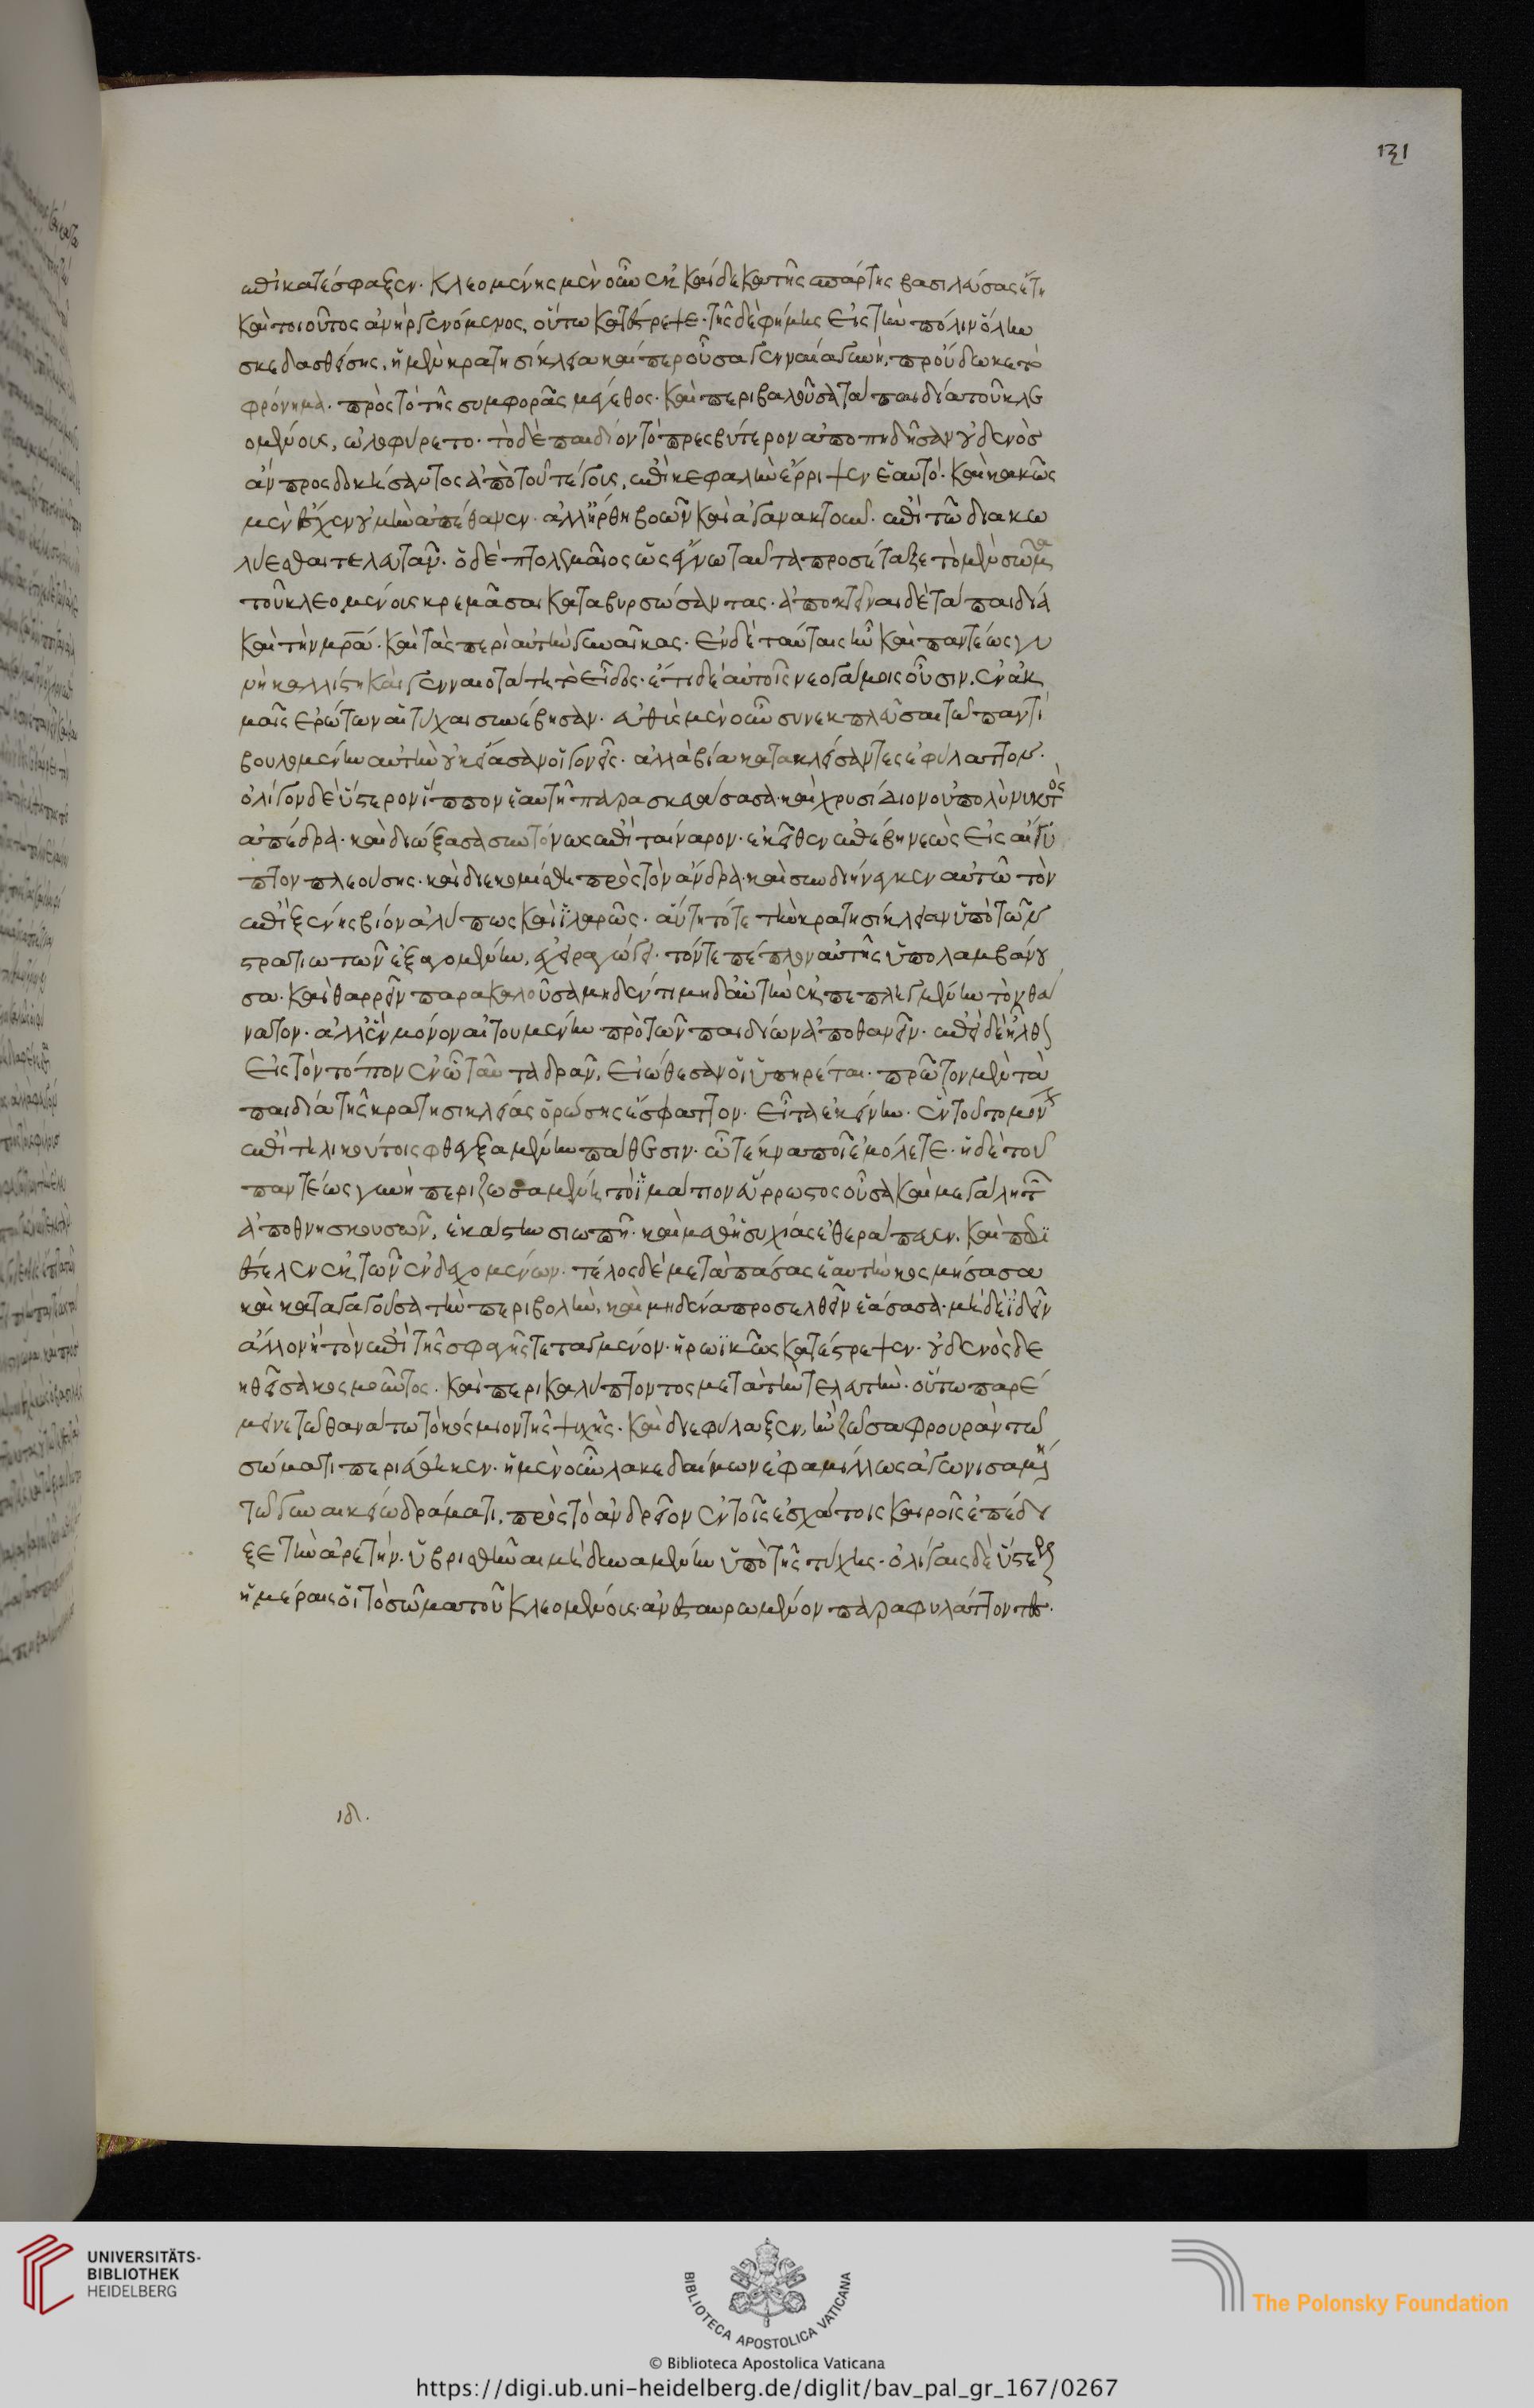 131
ἐπικατέσφαξεν. Κλεομένης μὲν οὖν ἐκκαίδεκα τῆς σπάρτης βασιλεύσας ἔτη
καὶ τοιοῦτος ἀνὴρ γενόμενος, οὕτω κατέστρεψε. τῆς δὲ φήμης εἰς τὴν πόλιν ὅλην
σκεδασθείσης, ἡ μὲν κρατησίκλεια καίπερ οὖσα γενναία γυνή, προὔδωκε τὸ
φρόνημα. πρὸς τὸ τῆς συμφορᾶς μέγεθος. καὶ περιβαλοῦσα τὰ παιδία τοῦ κλε
ομένους, ὠλοφύρετο. τὸ δὲ παιδίον τὸ πρεσβύτερον ἀποπηδῆσαν οὐδενὸς
ἂν προσδοκήσαντος ἀπὸ τοῦ τέγους, ἐπὶ κεφαλὴν ἔρριψεν ἑαυτό. καὶ κακῶς
μὲν ἔσχεν οὐ μὴν ἀπέθανεν. ἀλλ' ἤρθη βοῶν καὶ ἀγανακτοῦν. ἐπὶ τῶ διακω
λύεσθαι τελευτᾶν. ὁ δὲ πτολεμαῖος ὡς ἔγνω ταῦτα προσέταξε τὸ μὲν σῶμα
τοῦ κλεομένους κρεμᾶσαι καταβυρσώσαντας. ἀποκτεῖναι δὲ τὰ παιδία
καὶ τὴν μρᾶ. καὶ τὰς περὶ αὐτὴν γυναῖκας. ἐν δὲ ταύταις ἦν καὶ παντέως γυ
νὴ καλλίστη καὶ γενναιοτάτη τὸ εἶδος. ἔτι δὲ αὐτοῖς νεογάμοις οὖσιν, ἐν ἀκ
μαῖς ἐρώτων αἱ τύχαι συνέβησαν. εὐθὺς μὲν οὖν συνεκπλεῦσαι τῶ παντεῖ
βουλομένην αὐτὴν οὐκ εἴασαν οἱ γονεῖς. ἀλλὰ βία κατακλείσαντες ἐφύλαττον.
ὀλίγον δὲ ὕστερον ἵππον ἑαυτῆ παρασκευάσασα. καὶ χρυσίδιον οὐ πολὺ νυκτὸς
ἀπέδρα. καὶ διώξασα συντόνως ἐπὶ ταίναρον. ἐκεῖθεν ἐπέβη νεὼς εἰς αἴγυ
πτον πλεούσης. καὶ διεκομίσθη πρὸς τὸν ἄνδρα. καὶ συνδιήνεγκεν αὐτῶ τὸν
ἐπὶ ξένης βίον ἀλύπως καὶ ἱλαρῶς. αὕτη τότε τὴν κρατησίκλειαν ὑπὸ τῶν
στρατιωτῶν ἐξαγομένην, ἐχειραγώγει. τόν τε πέπλον αὐτῆς ὑπολαμβάνου
σα. καὶ θαρρεῖν παρακαλοῦσα μηδέν τι μηδ' αὐτὴν ἐκπεπληγμένην τὸν θά
νατον. ἀλλ' ἓν μόνον αἰτουμένην πρὸ τῶν παιδίων ἀποθανεῖν. ἐπεὶ δὲ ἦλθον
εἰς τὸν τόπον ἐν ὧ ταῦτα δρᾶν, εἰώθεσαν οἱ ὑπηρέται. πρῶτον μὲν τὰ
παιδία τῆς κρατησικλείας ὁρώσης ἔσφαττον. εἶτα ἐκείνην. ἓν τοῦτο μόνον
ἐπὶ τηλικούτοις φθεγξαμένην πάθεσιν. ὦ τέκνα ποῖ ἐμόλετε. ἡ δὲ τοῦ
παντέως γυνὴ περιζωσαμένη τὸ ἱμάτιον εὔρρωστος οὖσα καὶ μεγάλη τῶν
ἀποθνησκουσῶν, ἑκάστην σιωπῆ. καὶ μεθ' ἡσυχίας ἐθεράπευεν. καὶ περι
έστελεν ἐκ τῶν ἐνδεχομένων. τέλος δὲ μετὰ πάσας ἑαυτὴν κοσμήσασα
καὶ καταγαγοῦσα τὴν περιβολὴν, καὶ μηδένα προσελθεῖν ἐάσασα. μηδὲ ἰδεῖν
ἄλλον ἢ τὸν ἐπὶ τῆς σφαγῆς τεταγμένον. ἡρωϊκῶς κατέστρεψεν. οὐδενὸς δε
ηθεῖσα κοσμοῦντος. καὶ περικαλύπτοντος μετὰ τὴν τελευτὴν. οὕτω παρέ
μεινε τῶ θανάτω τὸ κόσμιον τῆς ψυχῆς. καὶ διεφύλαξεν, ἣν ζῶσα φρουρὰν τῶ
σώματι περιέθηκεν. ἡ μὲν οὖν λακεδαίμων ἐφαμίλλως ἀγωνισαμένη
τῶ γυναικείω δράματι, πρὸς τὸ ἀνδρεῖον ἐν τοῖς ἐσχάτοις καιροῖς ἐπέδει
ξε τὴν ἀρετήν. ὑβρισθῆναι μὴ δυναμένην ὑπὸ τῆς τύχης. ὀλίγαις δὲ ὕστερον
ἡμέραις οἱ τὸ σῶμα τοῦ Κλεομένους ἀνεσταυρωμένον παραφυλάττοντες.
ιδ.
UNIVERSITÄTS-
BIBLIOTHEK
HEIDELBERG
BIBLIOTECA APOSTOLICA VATICANA
The Polonsky Foundation
© Biblioteca Apostolica Vaticana
https://digi.ub.uni-heidelberg.de/diglit/bav_pal_gr_167/0267